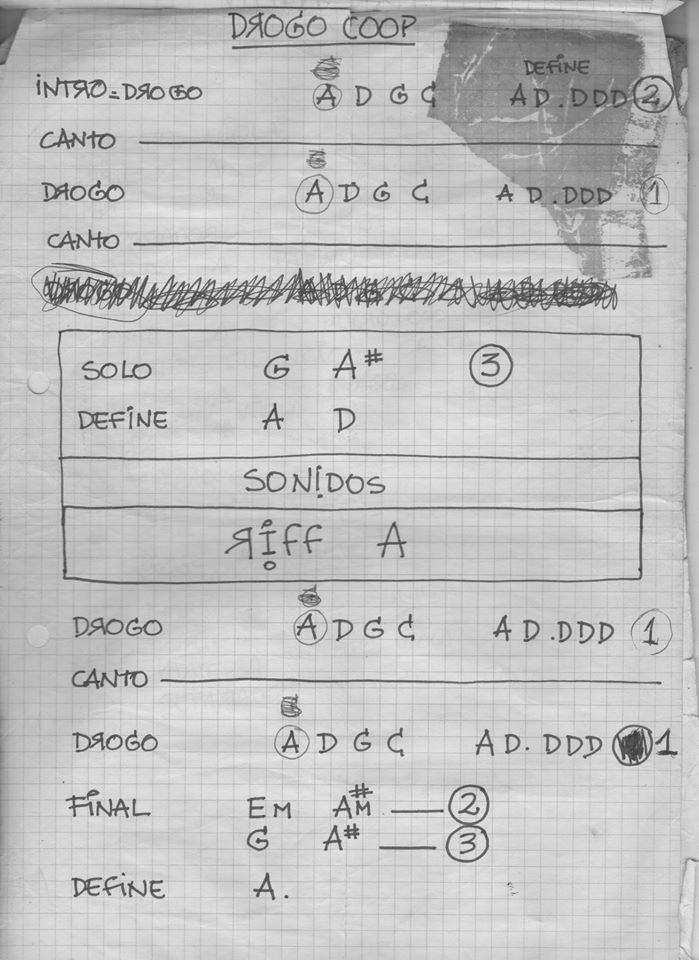 DROGO COOP
DEFINE
INTRO = DROGO A D G C A D . D D D 2
CANTO
DROGO A D G C A D . D D D 1
CANTO
SOLO G A# 3
DEFINE A D
SONIDOS
RIFF A
DROGO A D G C A D . D D D 1
CANTO
DROGO A D G C A D . D D D 1
FINAL EM A#M 2
G A# 3
DEFINE A.